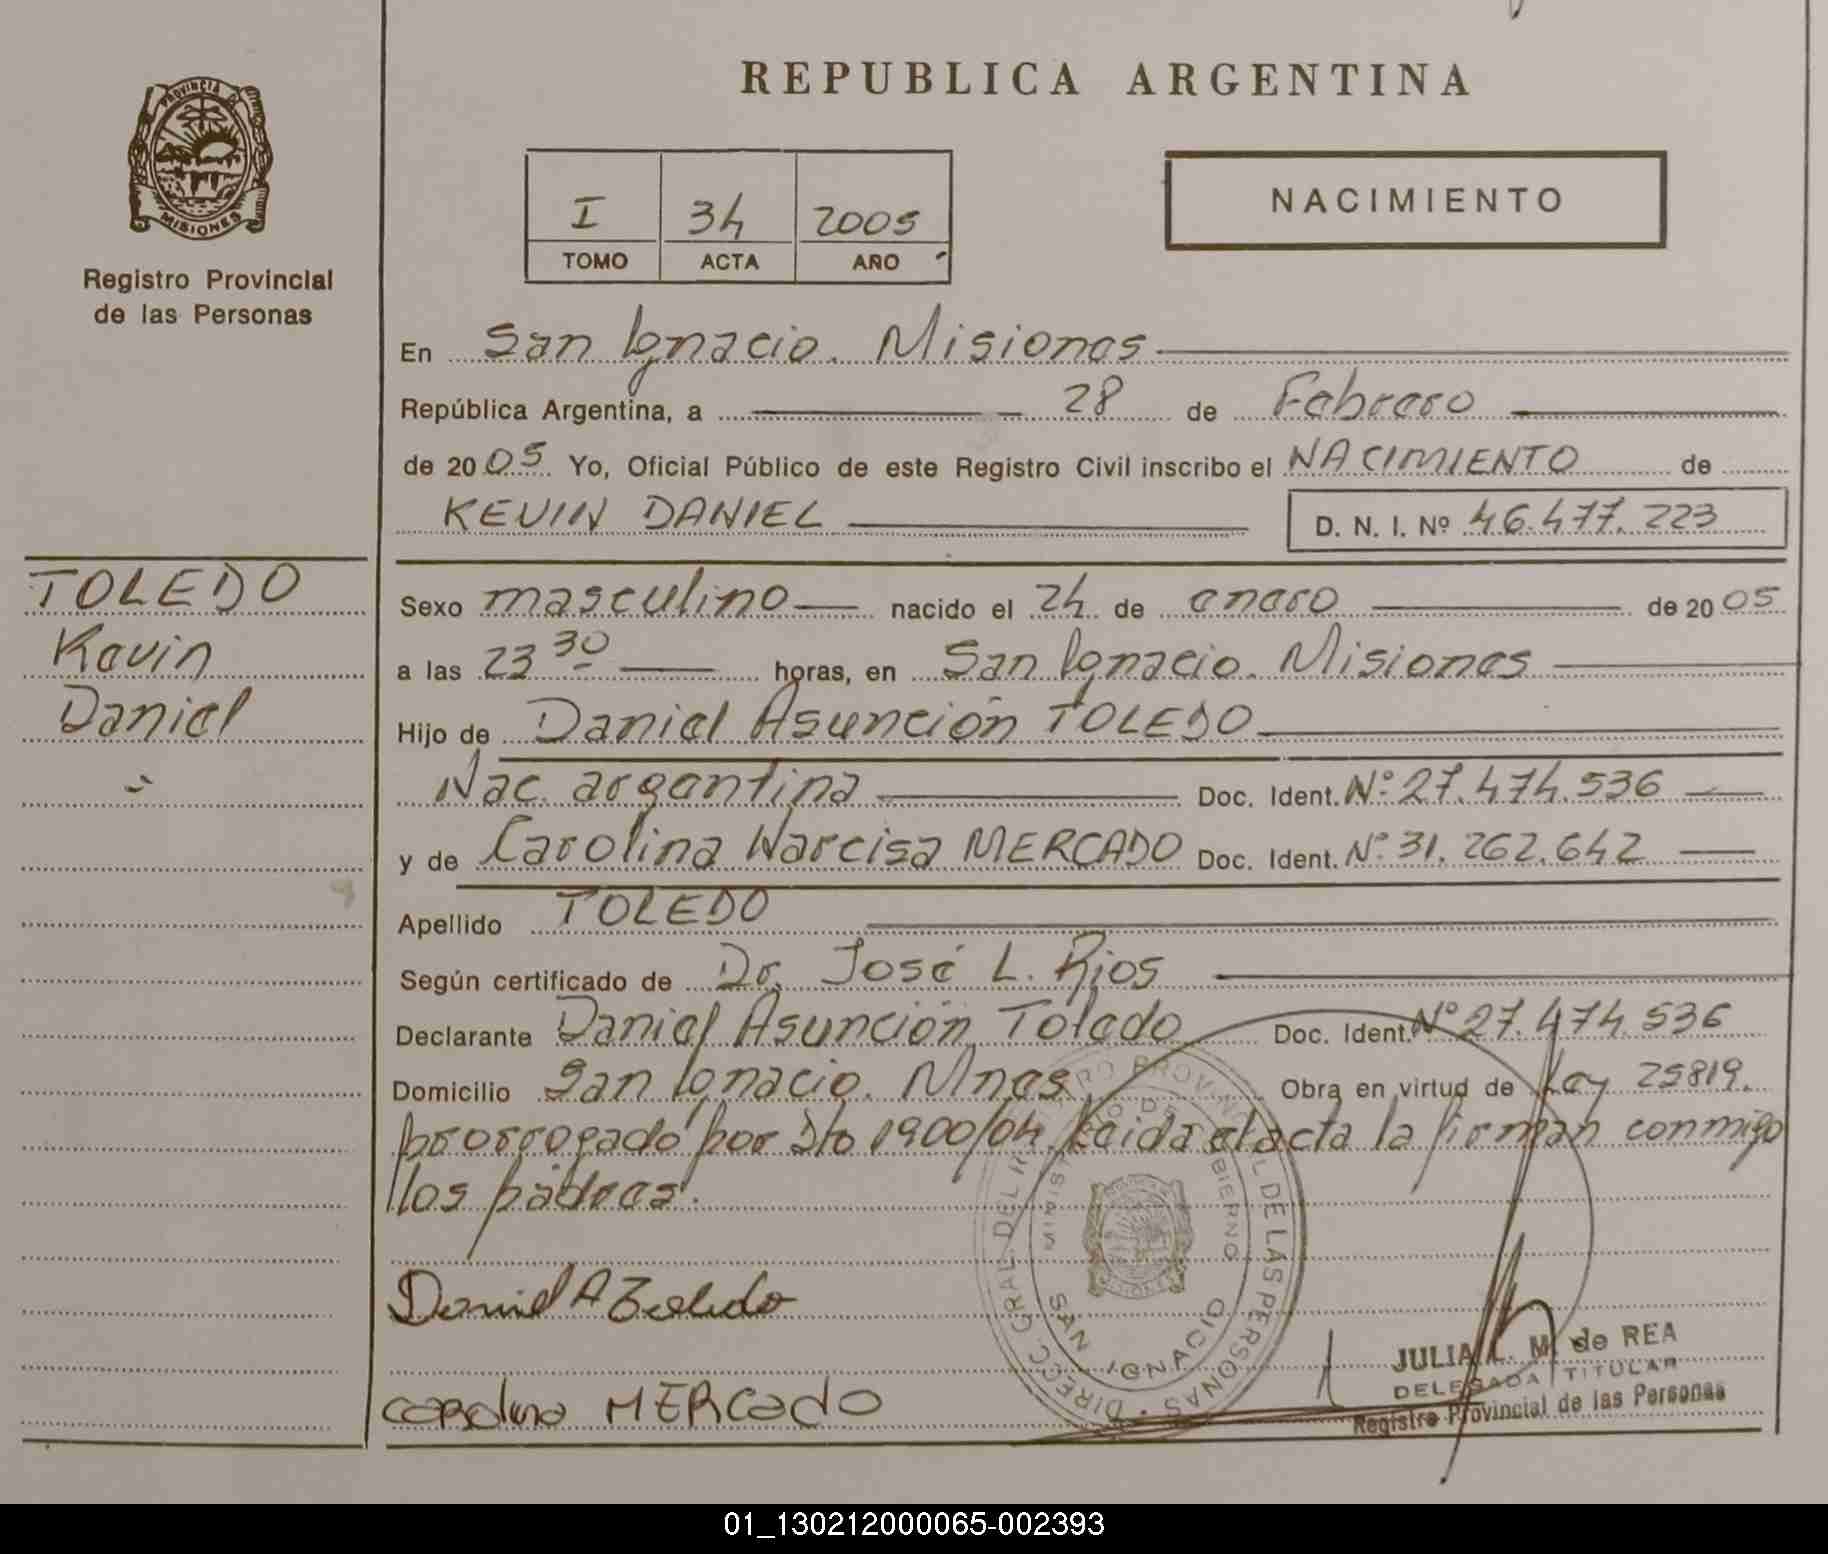 PROVINCIA DE
MISIONES
Registro Provincial
de las Personas
REPUBLICA ARGENTINA
I 34 2005
TOMO ACTA AÑO
NACIMIENTO
En San Ignacio. Misiones
República Argentina, a 28 de Febrero
de 2005. Yo, Oficial Público de este Registro Civil inscribo el NACIMIENTO de
KEVIN DANIEL D. N. I. Nº 46.477.223
TOLEDO
Kevin
Daniel
Sexo masculino nacido el 24 de enero de 2005
a las 23 30 horas, en San Ignacio. Misiones
Hijo de Daniel Asunción TOLEDO
Nac. argentina Doc. Ident. Nº 27.474.536
y de Carolina Narcisa MERCADO Doc. Ident. Nº 31.262.642
Apellido TOLEDO
Según certificado de Dr. José L. Rios
Declarante Daniel Asunción Toledo Doc. Ident. Nº 27.474.536
Domicilio San Ignacio. Mnes. Obra en virtud de Ley 25819.
prorrogado por Dto 1900/04. Leida el acta la firman conmigo
los padres.
Daniel A Toledo
Carolina MERCADO
DIRECC. GRAL. DEL REGISTRO PROVINCIAL DE LAS PERSONAS
MINISTERIO DE GOBIERNO
SAN IGNACIO
JULIA L. M. de REA
DELEGADA TITULAR
Registro Provincial de las Personas
01_130212000065-002393